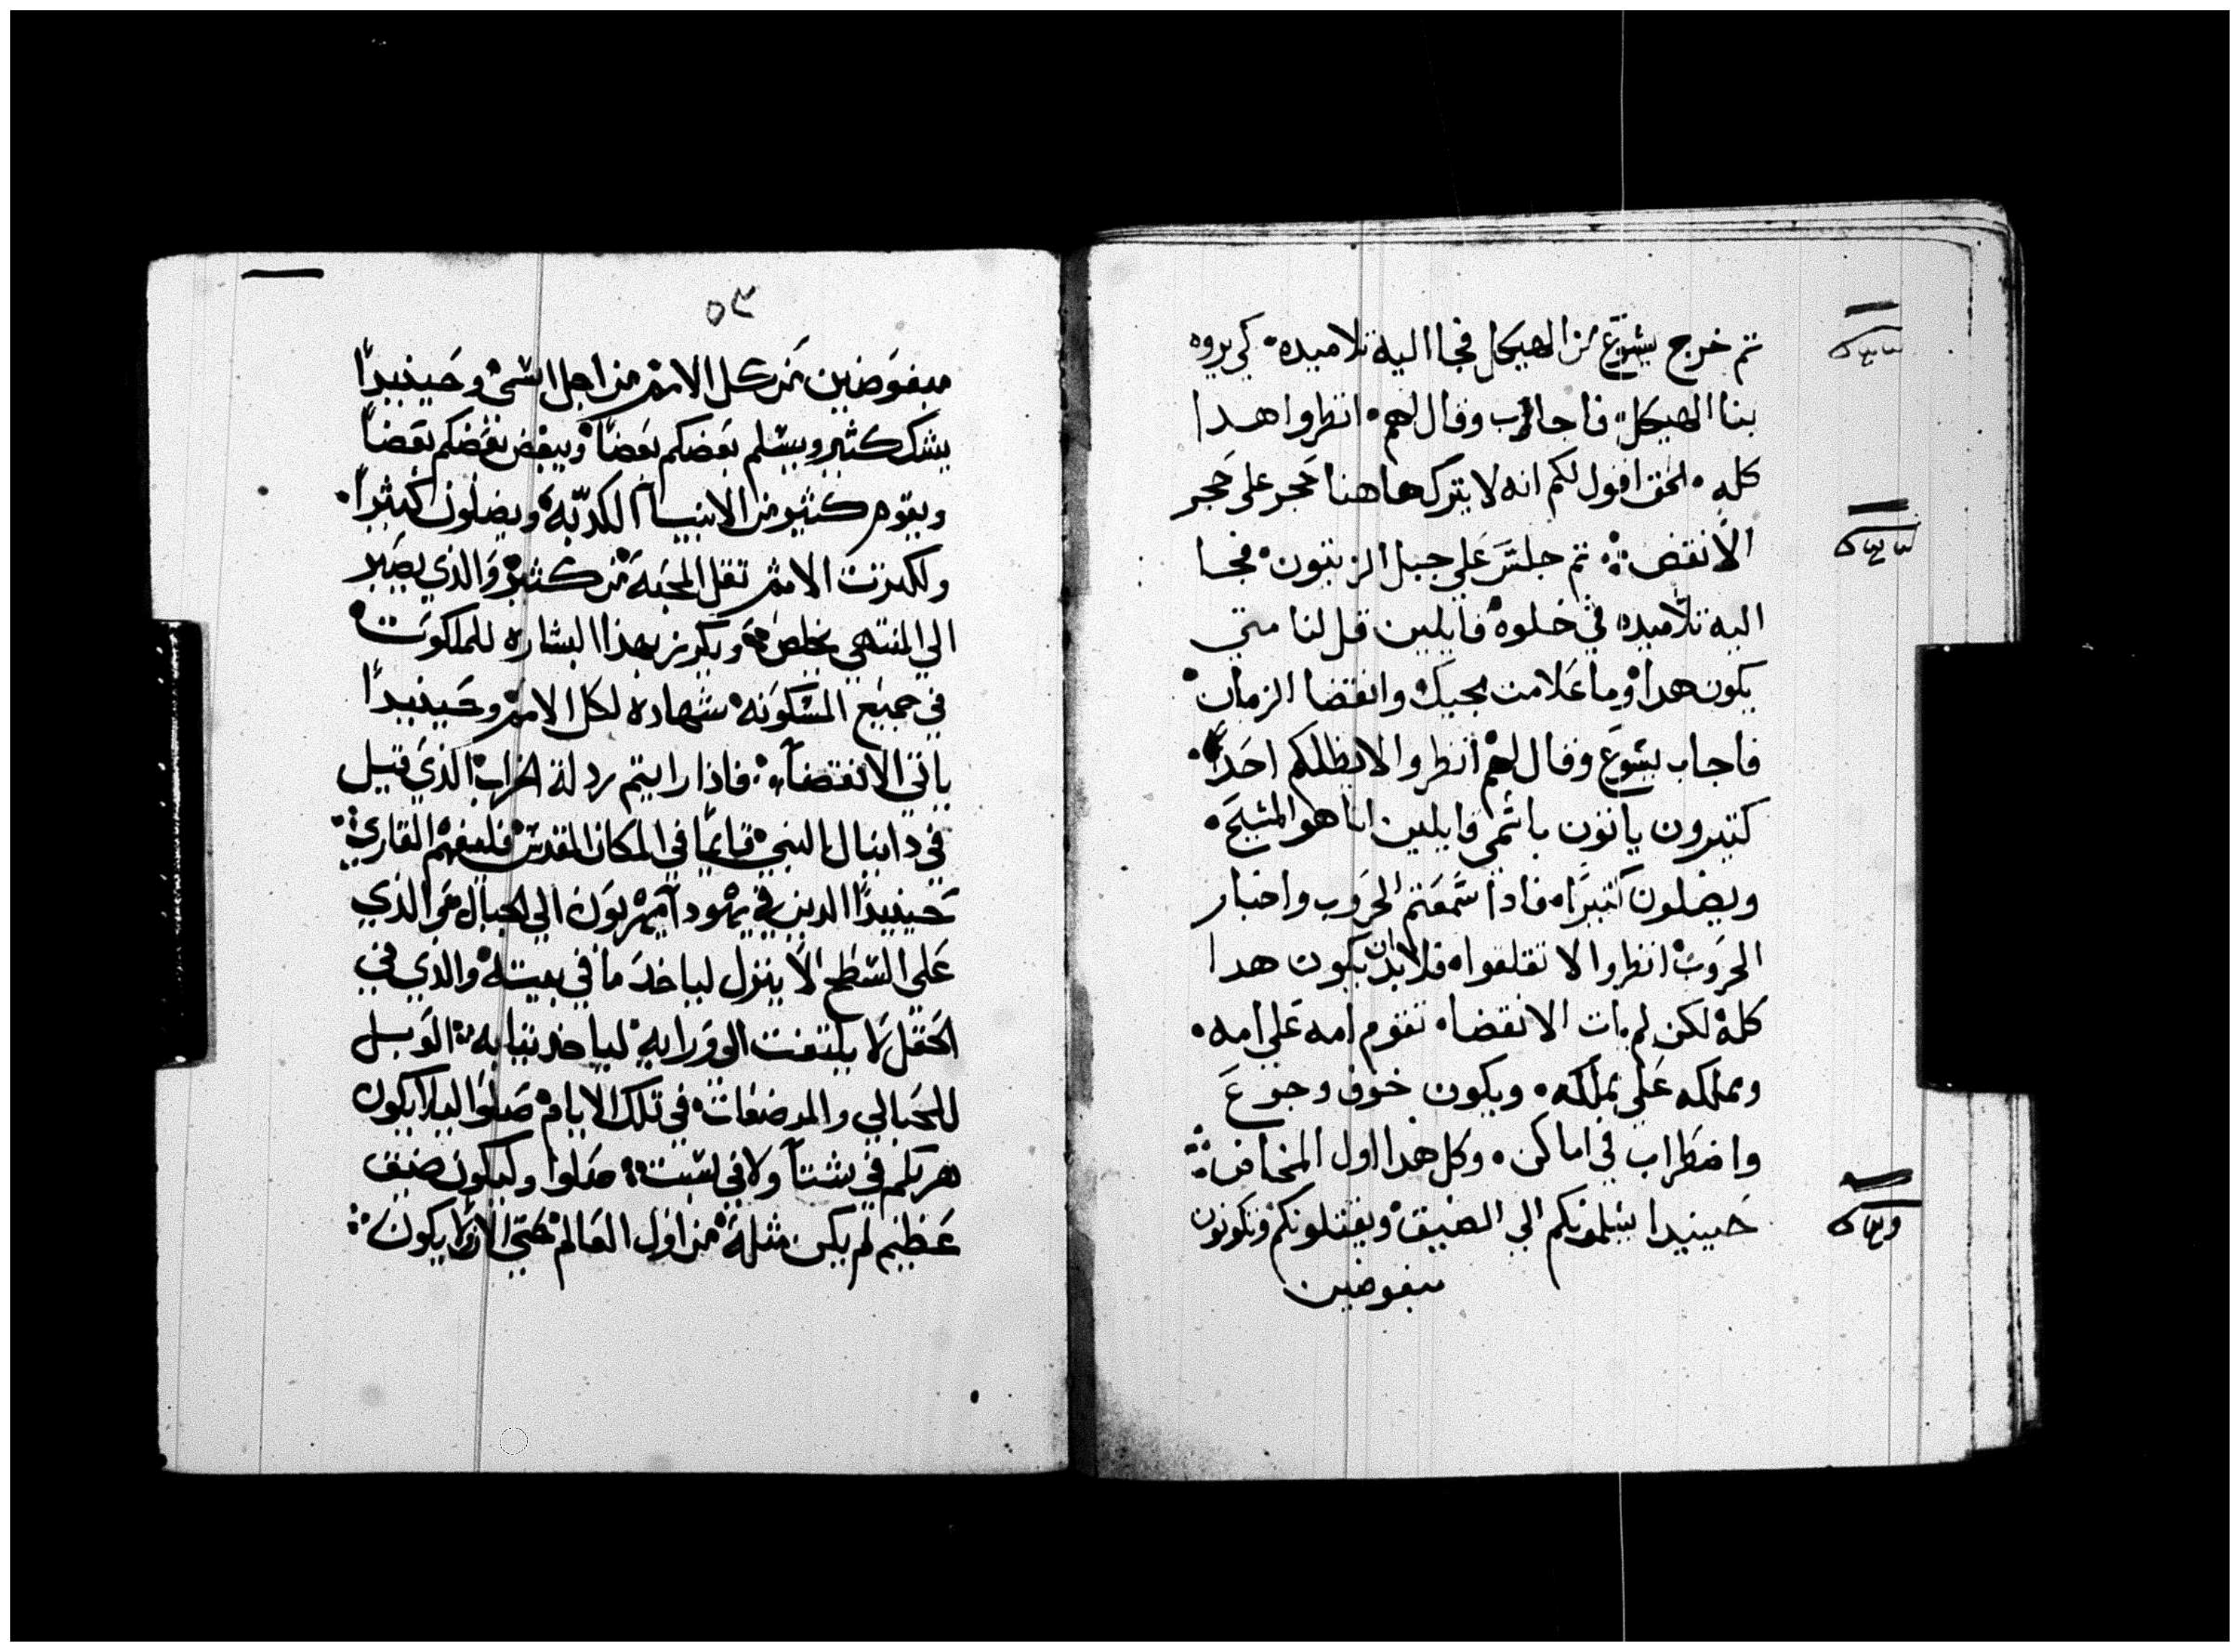 تم خرج يشوع من الهيكل فجا اليه تلاميده كي يروه
بنا الهيكل فاجاب وقال لهم انظروا هدا
كله الحق اقول لكم انه لا يترك هاهنا حجر علي حجر
الا نقض تم جلس علي جبل الزيتون فجا
اليه تلاميده في خلوه قايلين قل لنا متي
يكون هدا وما علامت مجيك وانقضا الزمان
فاجاب يشوع وقال لهم انظروا لا يظلكم احدا
كتيرون ياتون باسمي قايلين انا هو المسيح
ويضلون كتيرا فادا سمعتم الحروب واخبار
الحروب انظروا لا تقلقوا فلابد ان يكون هدا
كله لكن لم يات الانقضا تقوم امه علي امه
ومملكه علي مملكه ويكون خوف وجوع
واضطراب في اماكن وكل هدا اول المخاض
حينيدا يسلمونكم الي الضيق ويقتلونكم وتكونون
مبغوضين
٥٣
مبغوضين من كل الامم من اجل اسمي وحينيدا
يشك كثير ويسلم بعضكم بعضا ويبغض بعضكم بعضا
ويقوم كثير من الانبيا الكدبه ويضلون كثيرا
ولكترت الاثم تقل المحبه من كثير والذي يصبر
الي المنتهي يخلص ويكرز بهذا البشاره للملكوت
في جميع المسكونه شهاده لكل الامم وحينيدا
ياتي الانقضا فاذا رايتم ردلة الخراب الذي قيل
في دانيال النبي قايما في المكان المقدس فليفهم القاري
حينيدا الدين في يهودا يهربون الي الجبال والذي
علي السطح لا ينزل لياخد ما في بيته والذي في
الحقل لا يلتفت الي ورايه لياخد تيابه الويل
للحبالي والمرضعات في تلك الايام صلوا ليلا يكون
هربكم في شتا ولا في سبت صلوا وليكون ضيق
عظيم لم يكن مثله من اول العالم حتي الان ولا يكون